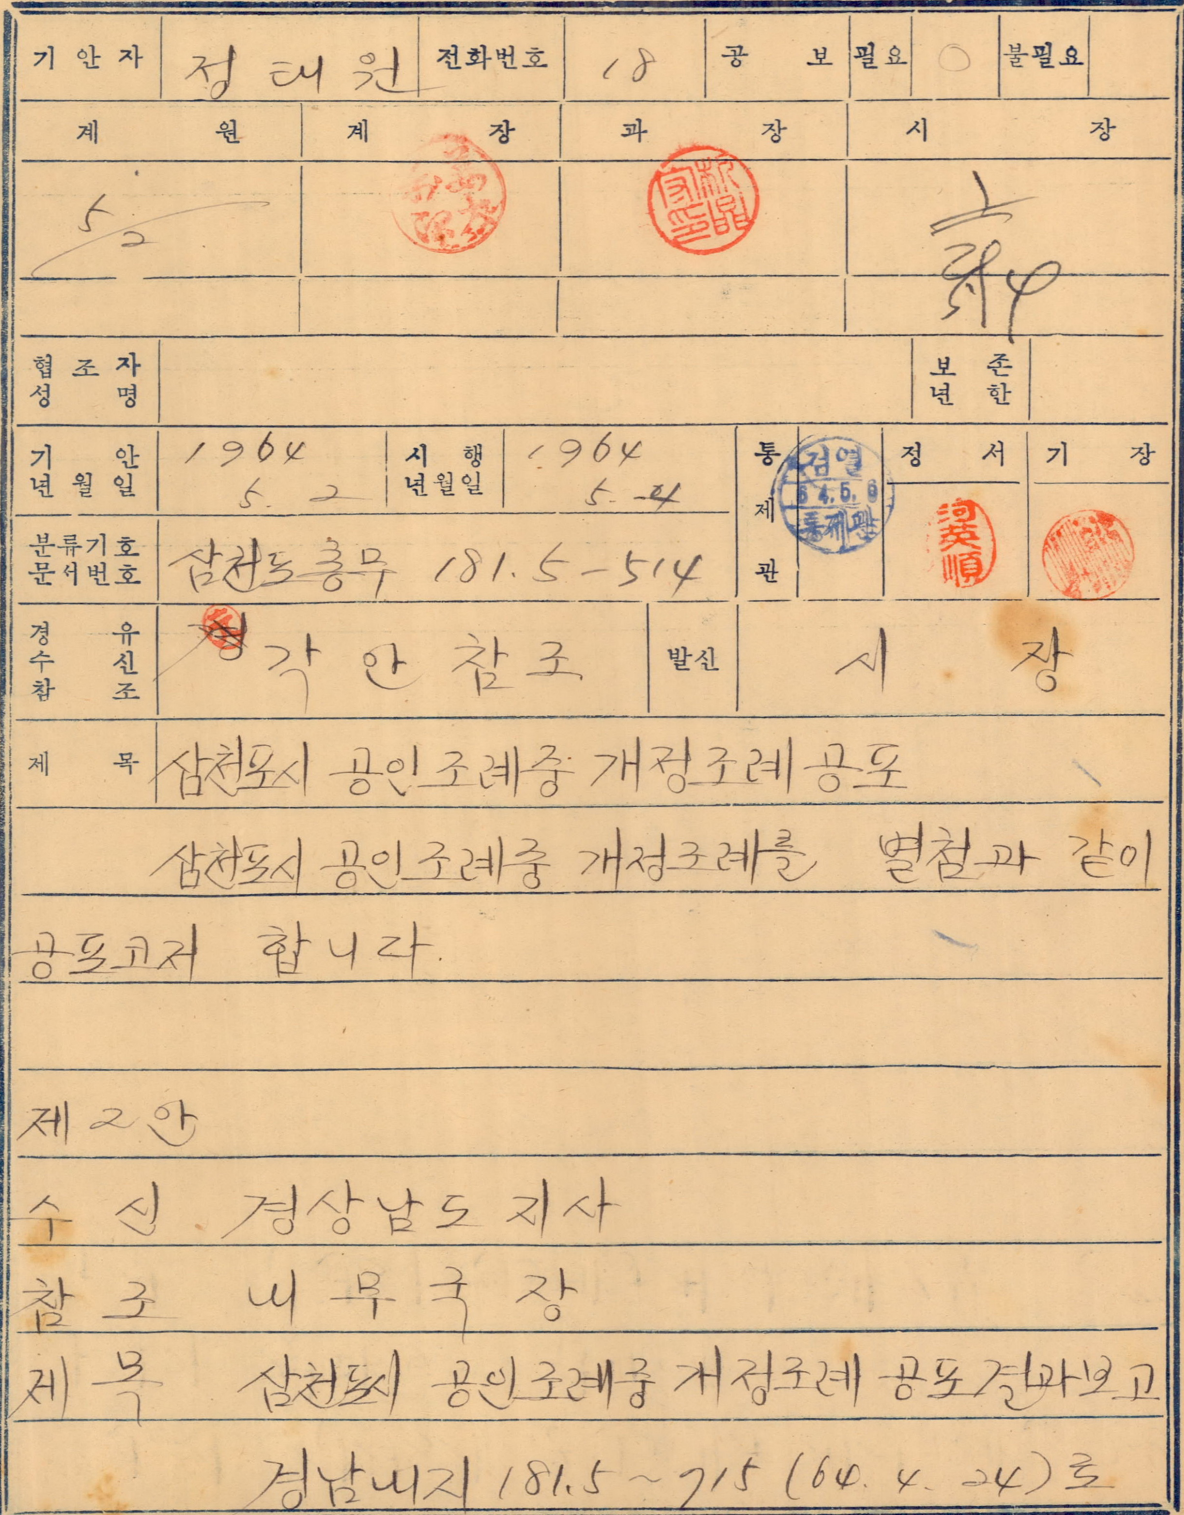 기 안 자 정 태 원 전화번호 18 공 보 필요 ○ 불필요
계 원 계 장 과 장 시 장
5/2
협 조 자
성 명
보 존
년 한
기 안
년 월 일
1964
5. 2
시 행
년월일
1964
5. 4
통
제
관
검열
64.5.6
통제관
정 서
河英順
기 장
분류기호
문서번호
삼천포총무 181.5-514
경 유
수 신
참 조
각 안 참 조
발신
시 장
제 목 삼천포시 공인조례중 개정조례 공포
삼천포시 공인조례중 개정조례를 별첨과 같이
공포고저 합니다.
제 2 안
수 신 경상남도 지사
참 조 내 무 국 장
제 목 삼천포시 공인조례중 개정조례 공포결과보고
경남내지 181.5~715 (64. 4. 24)로